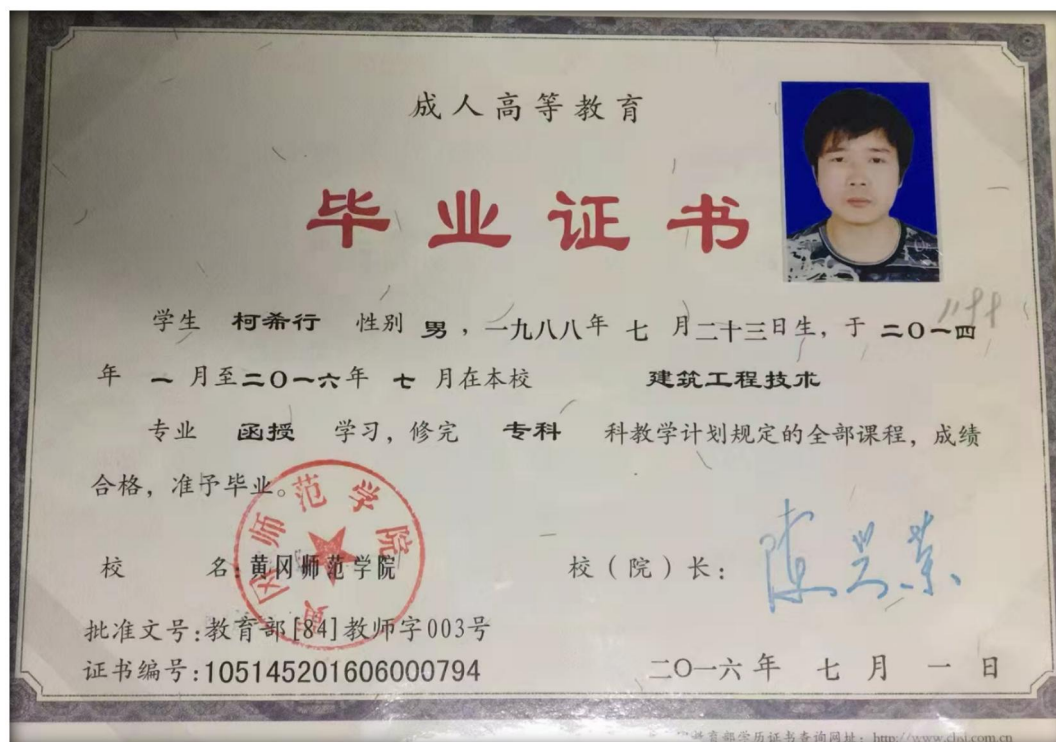 成人高等教育
毕业证书
学生 柯希行 性别 男，一九八八年 七 月二十三日生，于 二〇一四
年 一 月至二〇一六年 七 月在本校 建筑工程技术
专业 函授 学习，修完 专科 科教学计划规定的全部课程，成绩
合格，准予毕业。
黄冈师范学院
校 名：黄冈师范学院 校（院）长：陈兴荣
批准文号：教育部[84]教师字003号
证书编号：105145201606000794 二〇一六年 七 月 一 日
教育部学历证书查询网址：http://www.chsi.com.cn